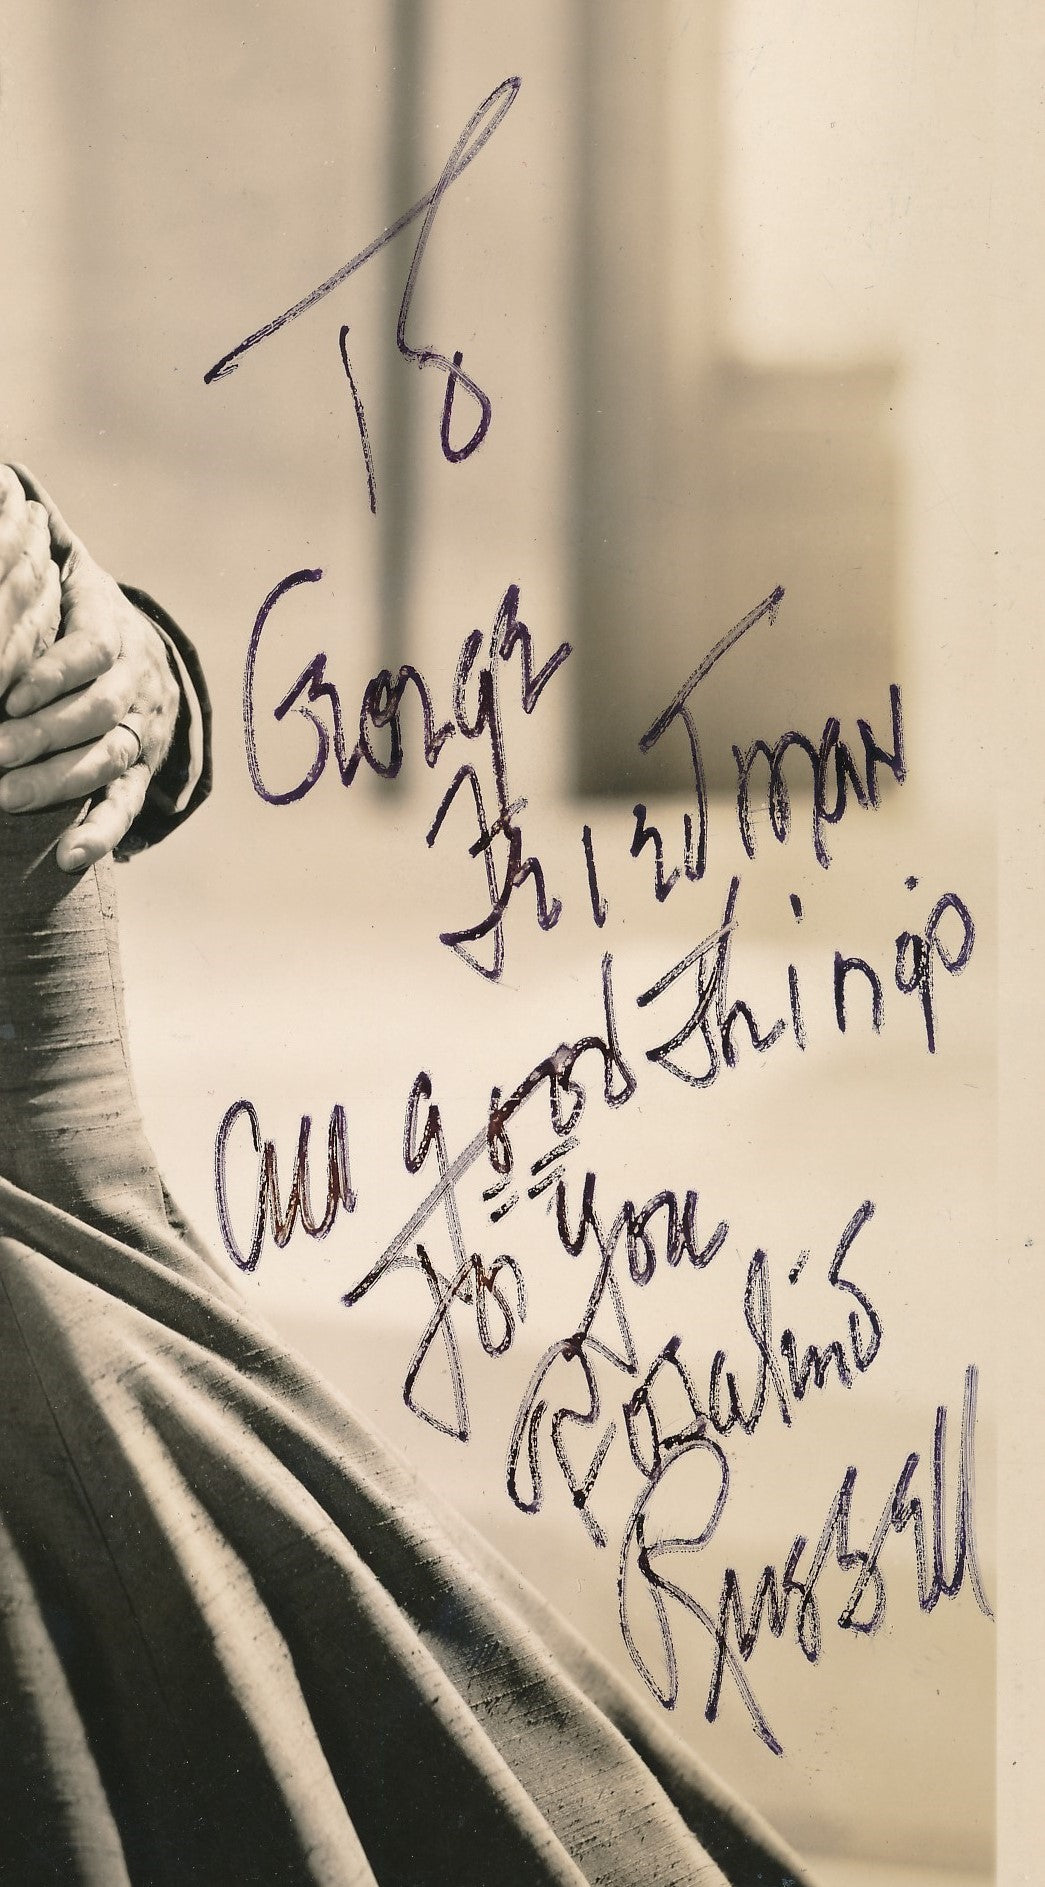 To
George
Friedman
All good things
For you
Rosalind
Russell